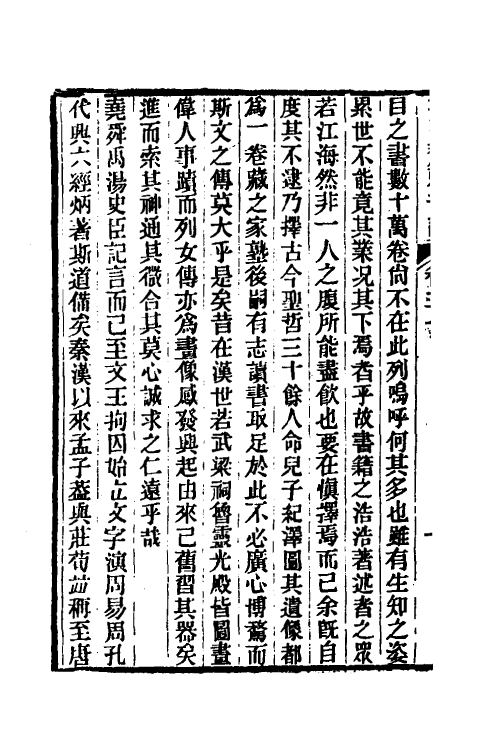 目之書數十萬卷尙不在此列嗚呼何其多也雖有生知之姿
累世不能竟其業况其下焉者乎故書籍之浩浩著述者之眾
若江海然非一人之腹所能盡飮也要在慎擇焉而已余旣自
度其不逮乃擇古今聖哲三十餘人命兒子紀澤圖其遺像都
爲一卷藏之家塾後嗣有志讀書取足於此不必廣心博騖而
斯文之傳莫大乎是矣昔在漢世若武梁祠魯靈光殿皆圖畫
偉人事蹟而列女傳亦爲畫像感發興起由來已舊習其器矣
進而索其神通其微合其莫心誠求之仁遠乎哉
堯舜禹湯史臣記言而已至文王拘囚始立文字演周易周孔
代興六經炳著斯道備矣秦漢以來孟子蓋與莊荀並稱至唐